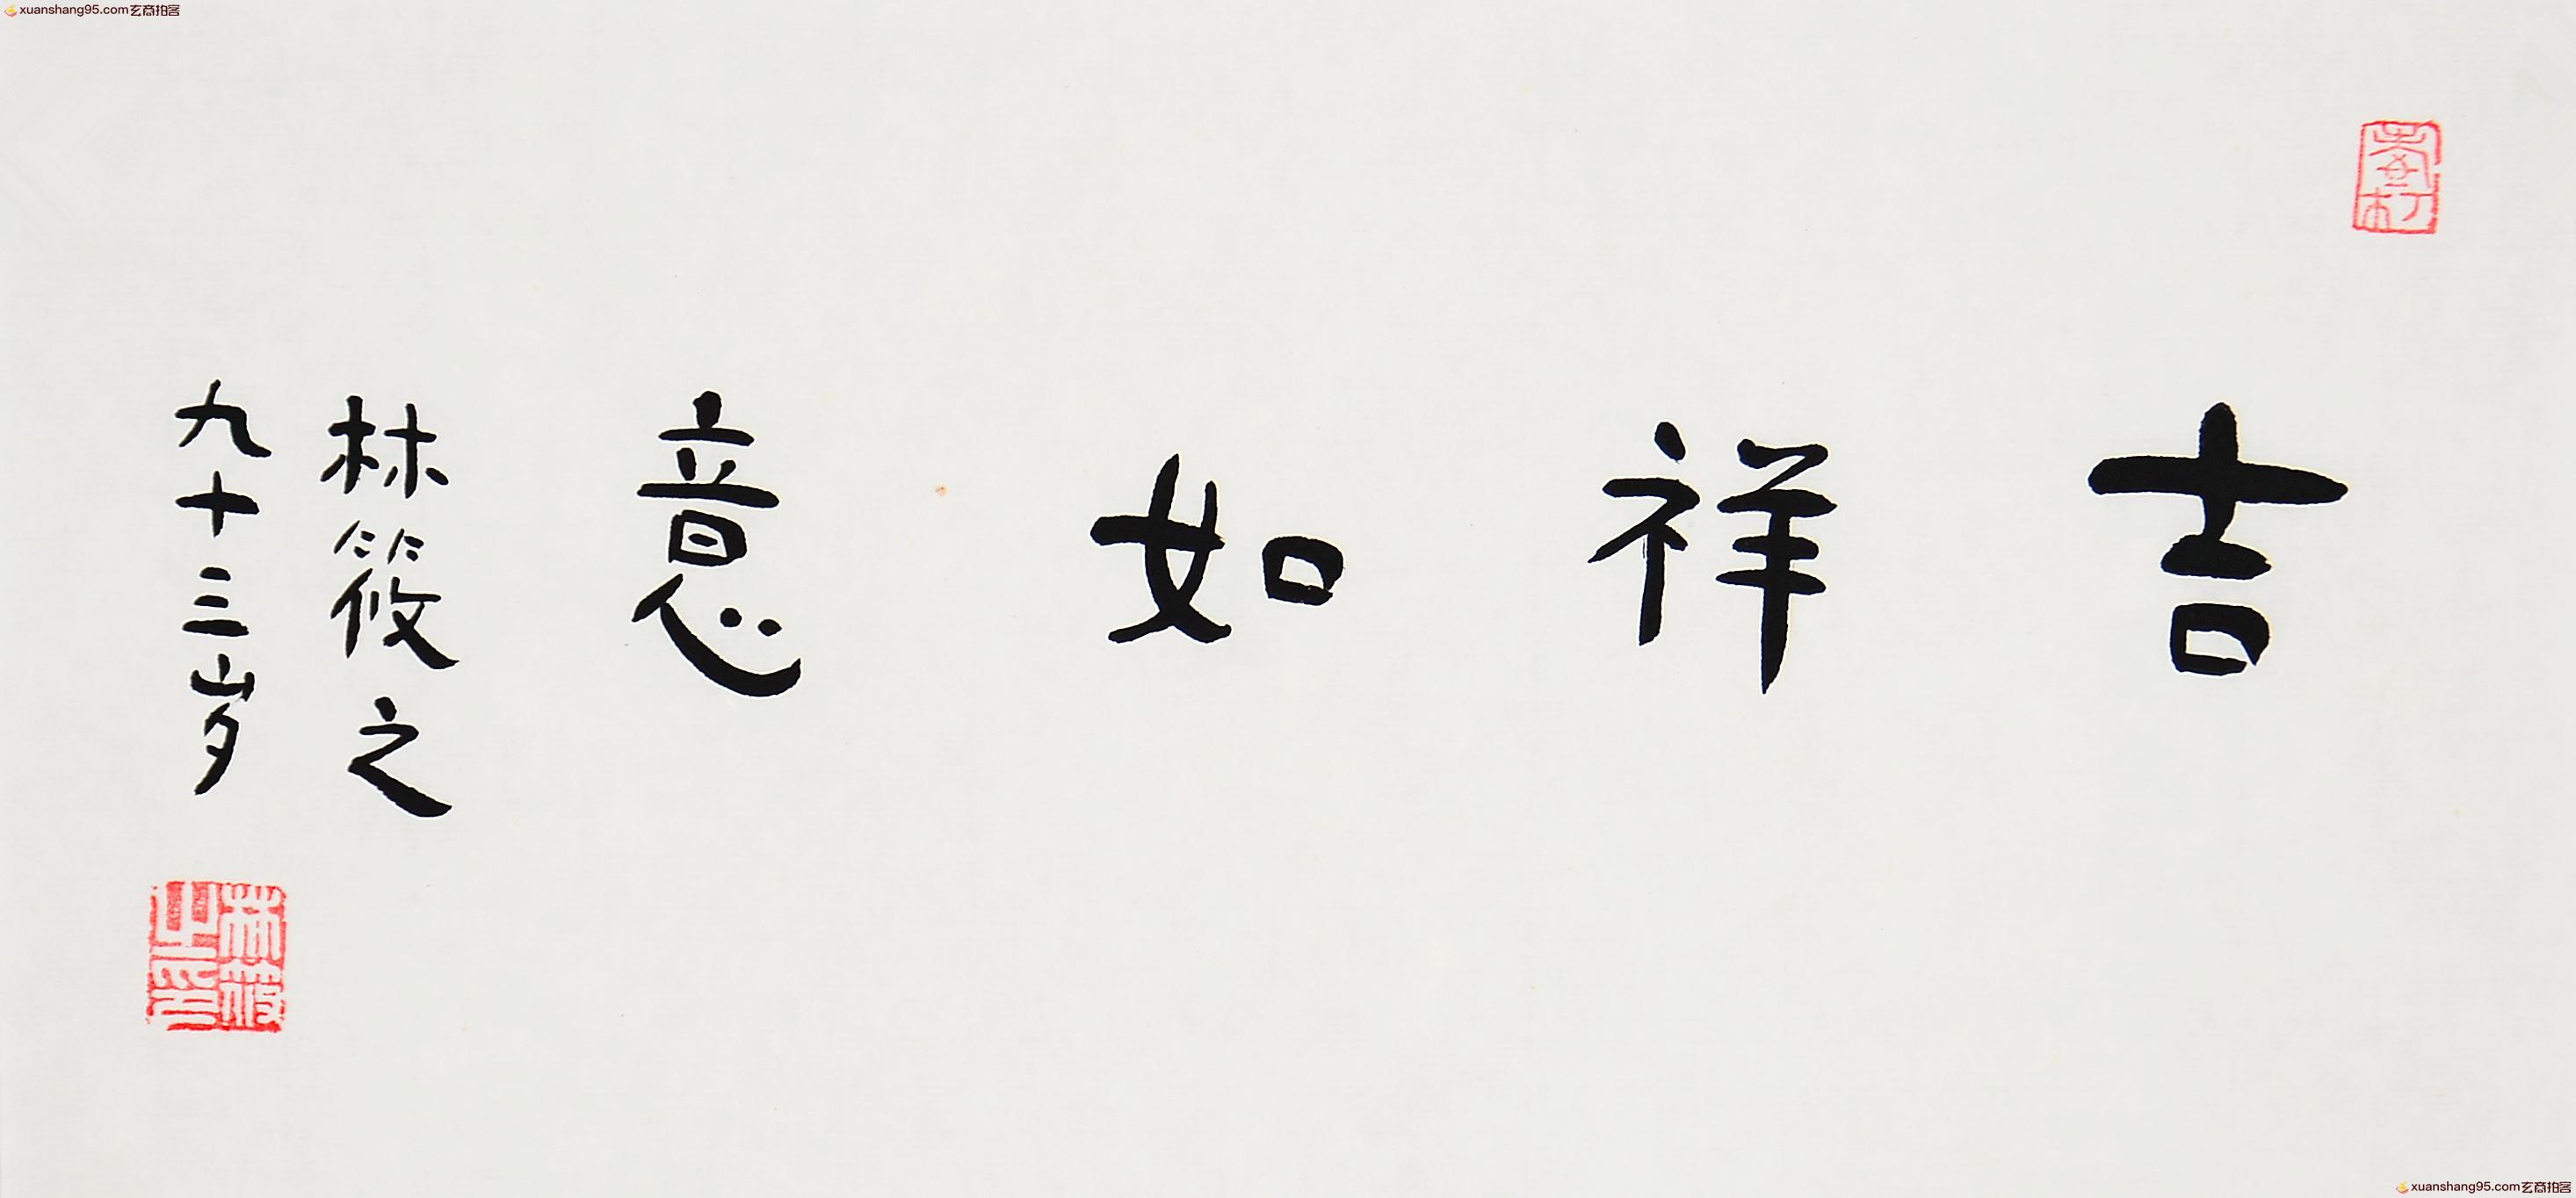 xuanshang95.com玄商拍客
吉祥如意
林筱之
九十三岁
林筱之印
xuanshang95.com玄商拍客